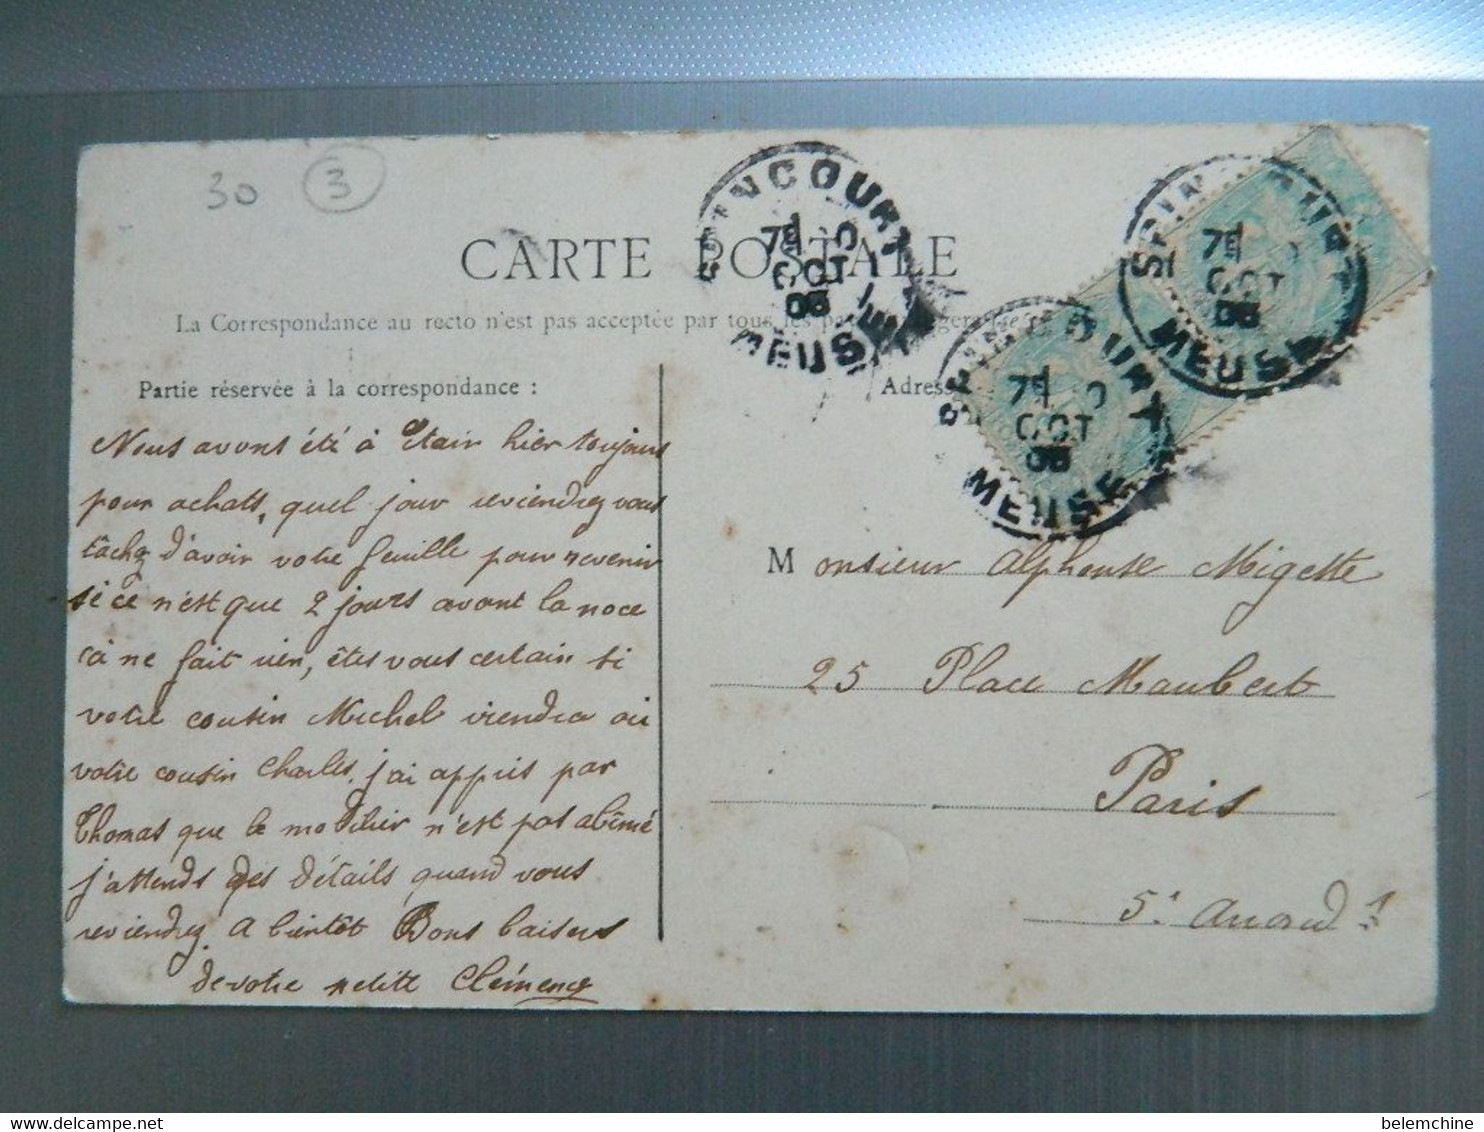 30 3
CARTE POSTALE
La Correspondance au recto n'est pas acceptée par tous les
Partie réservée à la correspondance :
Nous avons été à Etain hier toujours
pour achats, quel jour reviendrez vous
tâchez d'avoir votre feuille pour revenir
si ce n'est que 2 jours avant la noce
ça ne fait rien, êtes vous certain si
votre cousin Michel viendra où
votre cousin Charles, j'ai appris par
Thomas que le mobilier n'est pas abîmé
j'attends des détails quand vous
reviendrez. A bientôt Bons baisers
de votre petite Clémence
SPINCOURT
7E
OCT
MEUSE
SPINCOURT
7E
OCT
MEUSE
7E
OCT
MEUSE
Monsieur Alphonse Migette
25 Place Maubert
Paris
5e Arrond
delcampe.net
belemchine